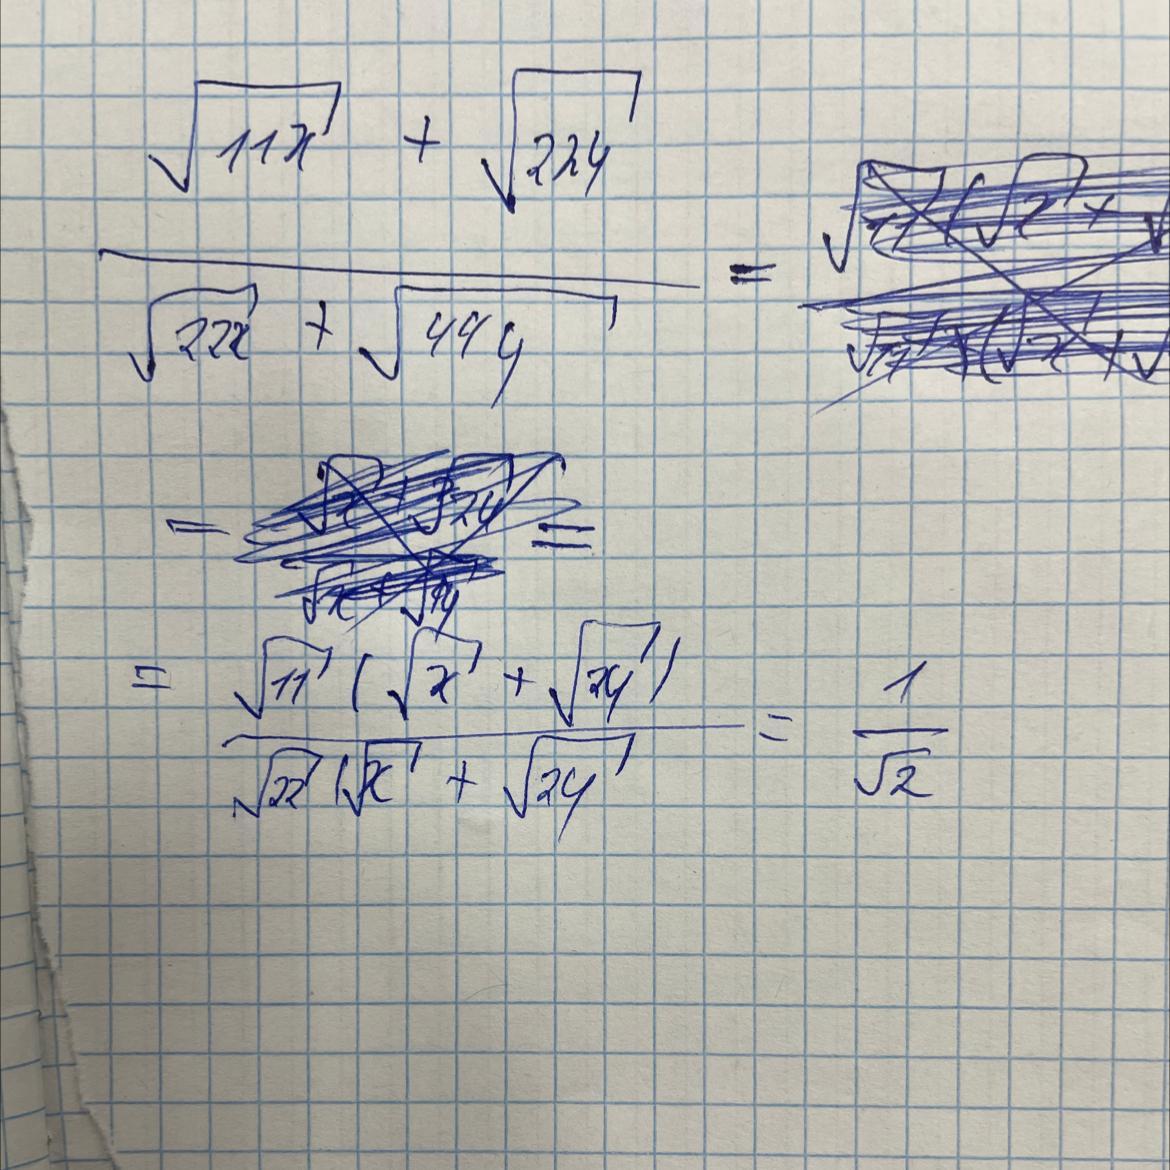 √11x + √22y
=
√22x + √44y
= =
= √11 (√x + √2y) = 1
√22 (√x + √2y √2